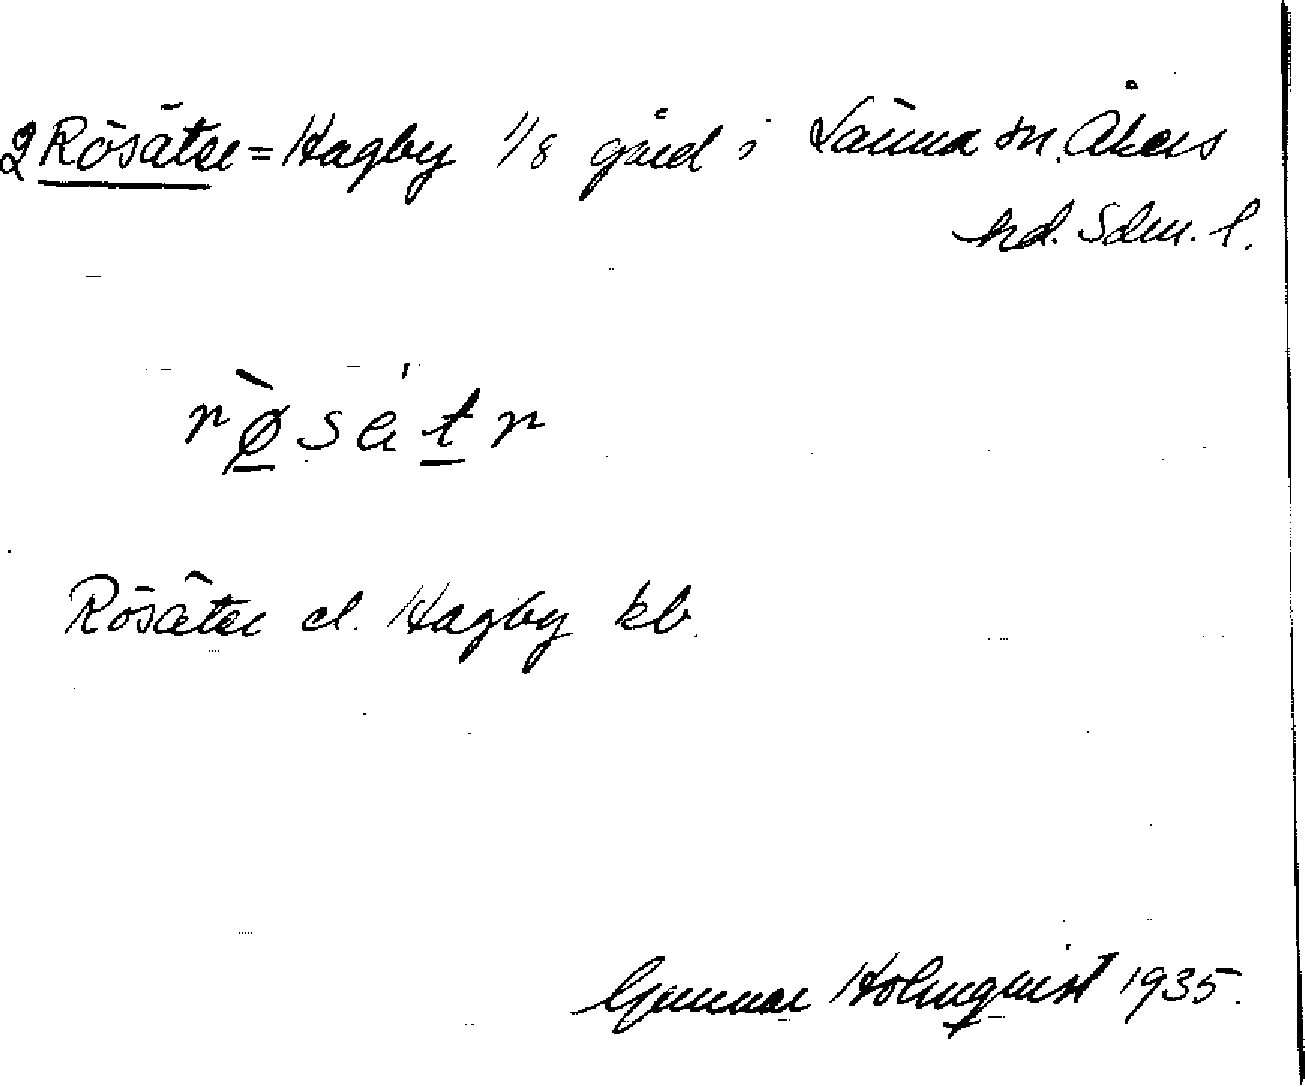 2 Rösätter = Hagby 1/8 gård i Länna sn. Åkers
hd. Sdm. l.
rø̀sätr
Rösätter el. Hagby kb.
Gunnar Holmquist 1935.